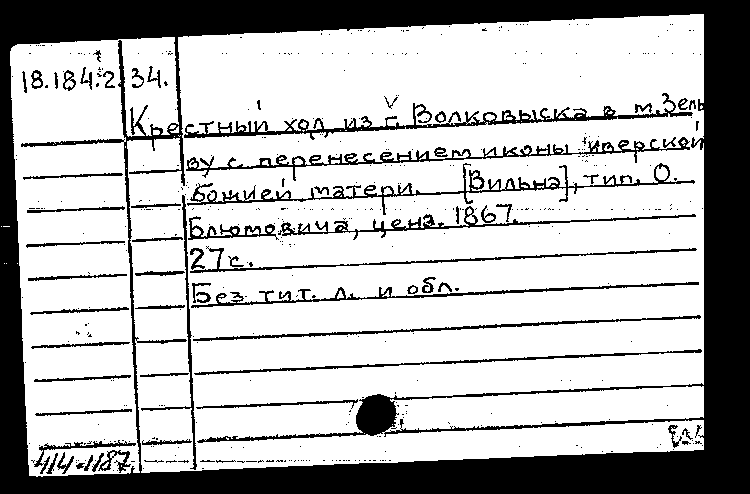 18.184.2.34.
Крестный ход из г. Волковыска в м. Зель
ву с перенесением иконы иверской
Божией матери. [Вильна], тип. О.
Блюмовича, ценз. 1867.
27 с.
Без тит. л. и обл.
414-1187